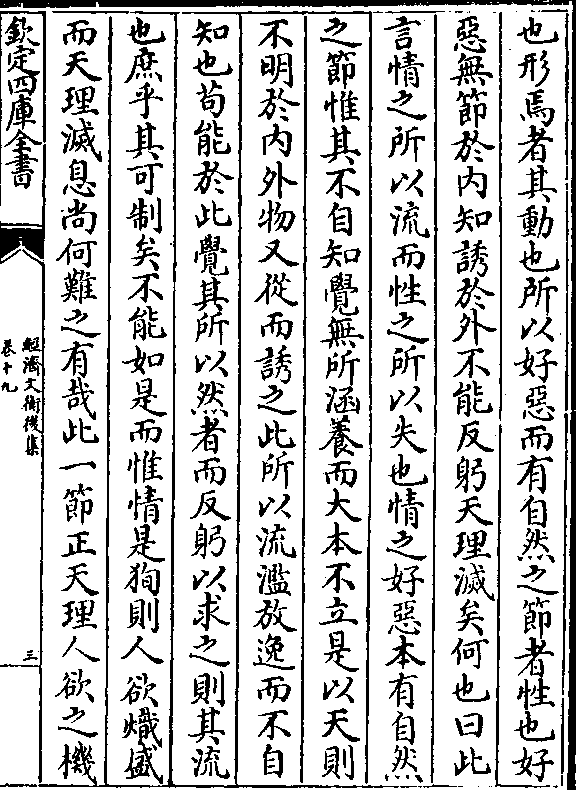 也形焉者其動也所以好惡而有自然之節者性也好
惡無節於内知誘於外不能反躬天理滅矣何也曰此
言情之所以流而性之所以失也情之好惡本有自然
之節惟其不自知覺無所涵養而大本不立是以天則
不明於内外物又從而誘之此所以流濫放逸而不自
知也苟能於此覺其所以然者而反躬以求之則其流
也庶乎其可制矣不能如是而惟情是狥則人欲熾盛
而天理滅息尚何難之有哉此一節正天理人欲之機
欽定四庫全書
經濟文衡後集
卷十九
三